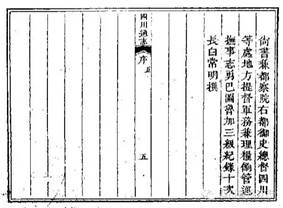 尚書兼都察院右都御史總督四川
等處地方提督軍務兼理糧餉管巡
撫事志勇巴圖魯加三級紀錄十次
長白常明撰
四川通志
序
五
五